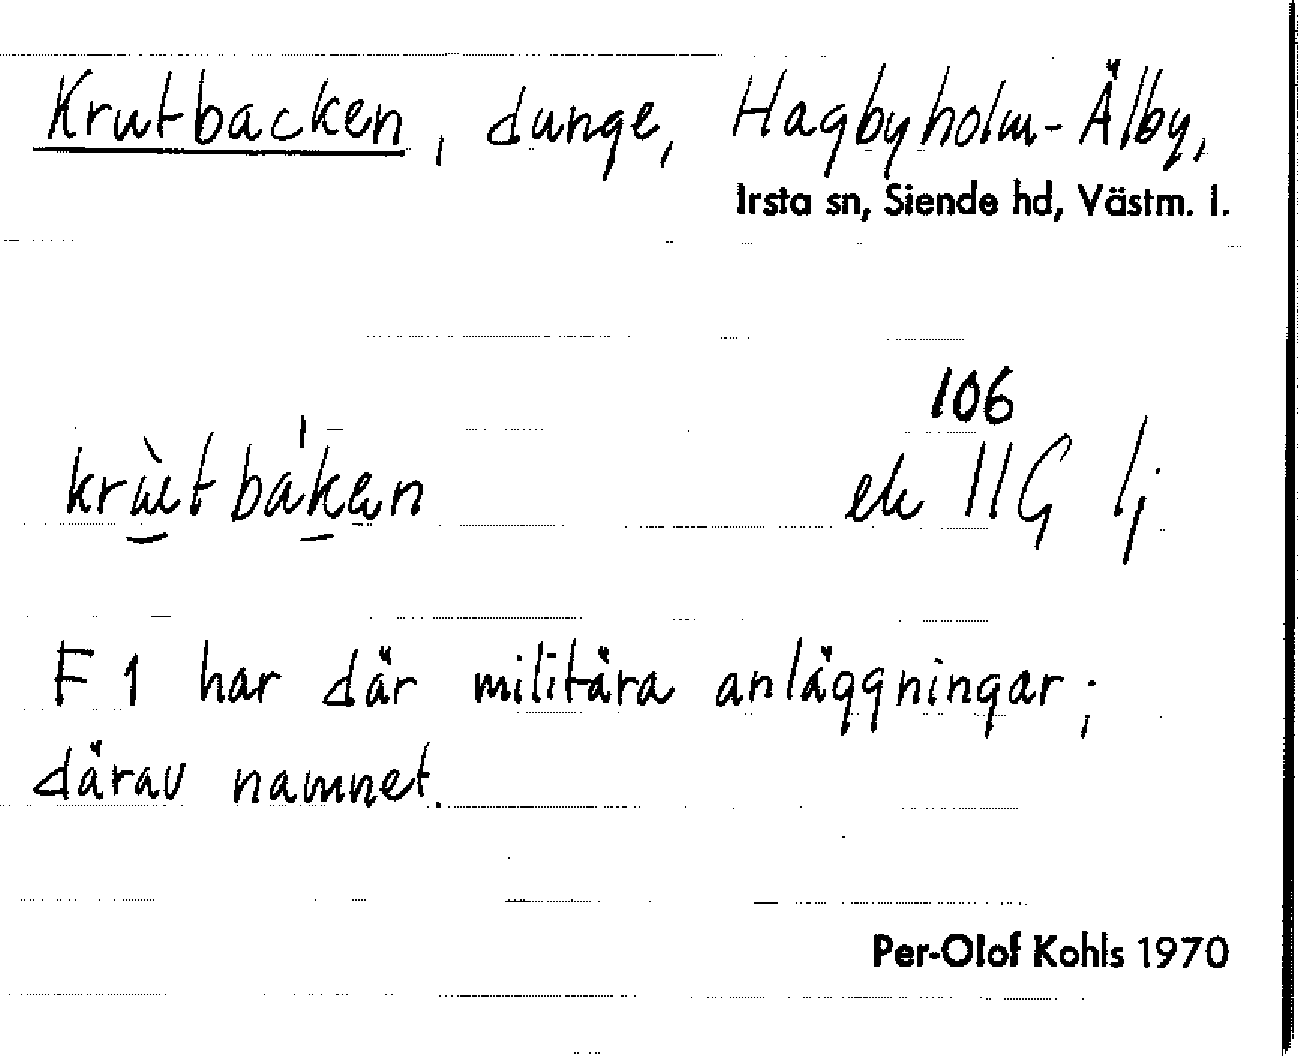 Krutbacken, dunge, Hagbyholm-Älby,
Irsta sn, Siende hd, Västm. l.
106
krùtbáken ek 11G lj
F 1 har där militära anläggningar;
därav namnet.
Per-Olof Kohls 1970